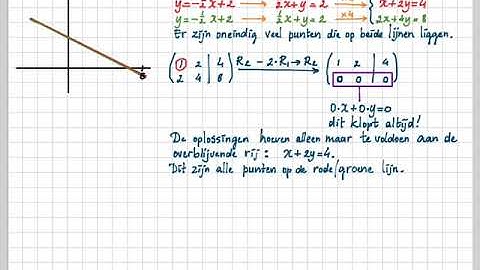 y=-½x+2 → ½x+y=2 —x2→ x+2y=4
y=-½x+2 → ½x+y=2 —x4→ 2x+4y=8
Er zijn oneindig veel punten die op beide lijnen liggen.
(1 2 | 4) R₂ - 2·R₁→R₂ (1 2 | 4)
(2 4 | 8) (0 0 | 0)
0·x+0·y=0
dit klopt altijd!
De oplossingen hoeven alleen maar te voldoen aan de
overblijvende rij: x+2y=4.
Dit zijn alle punten op de rode/groene lijn.